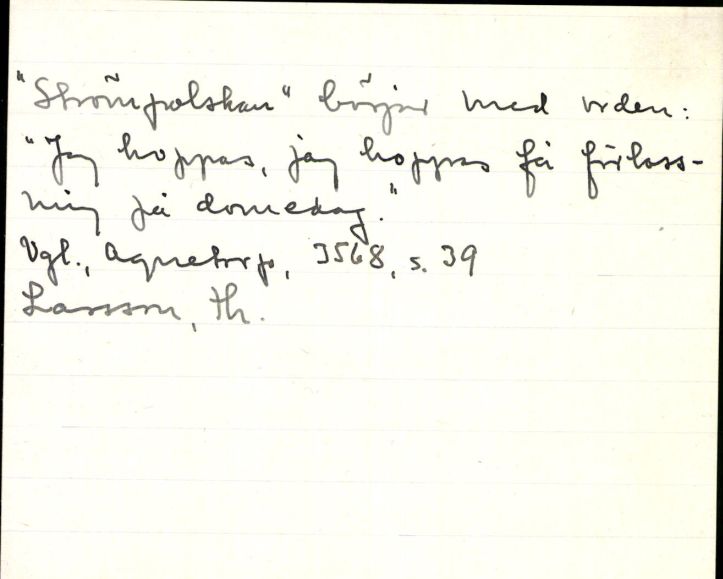 "Strömpolskan" börjar med orden:
"Jag hoppas, jag hoppas få förloss-
ning på domedag."
Vgl., Agnetorp, 3568, s. 39
Larsson, Th.